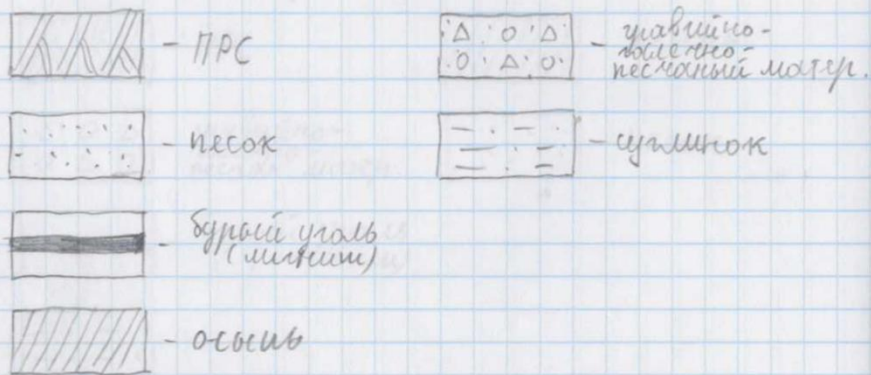 - ПРС
- песок
- бурый уголь
(лигнит)
- осыпь
- гравийно-
галечно-
песчаный матер.
- суглинок